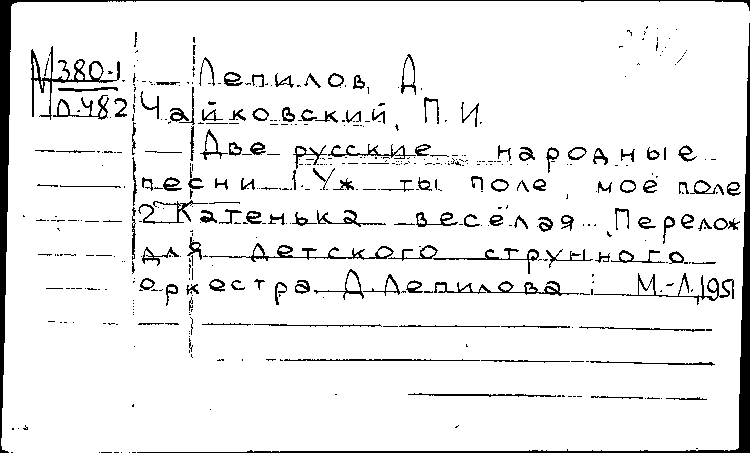 М380-1 Лепилов, Д.
Л.482 Чайковский, П. И.
Две русские народные
песни 1. Уж ты поле, моё поле
2 Катенька весёлая. Перелож
для детского струнного
оркестра Д. Лепилова. М.-Л., 1951